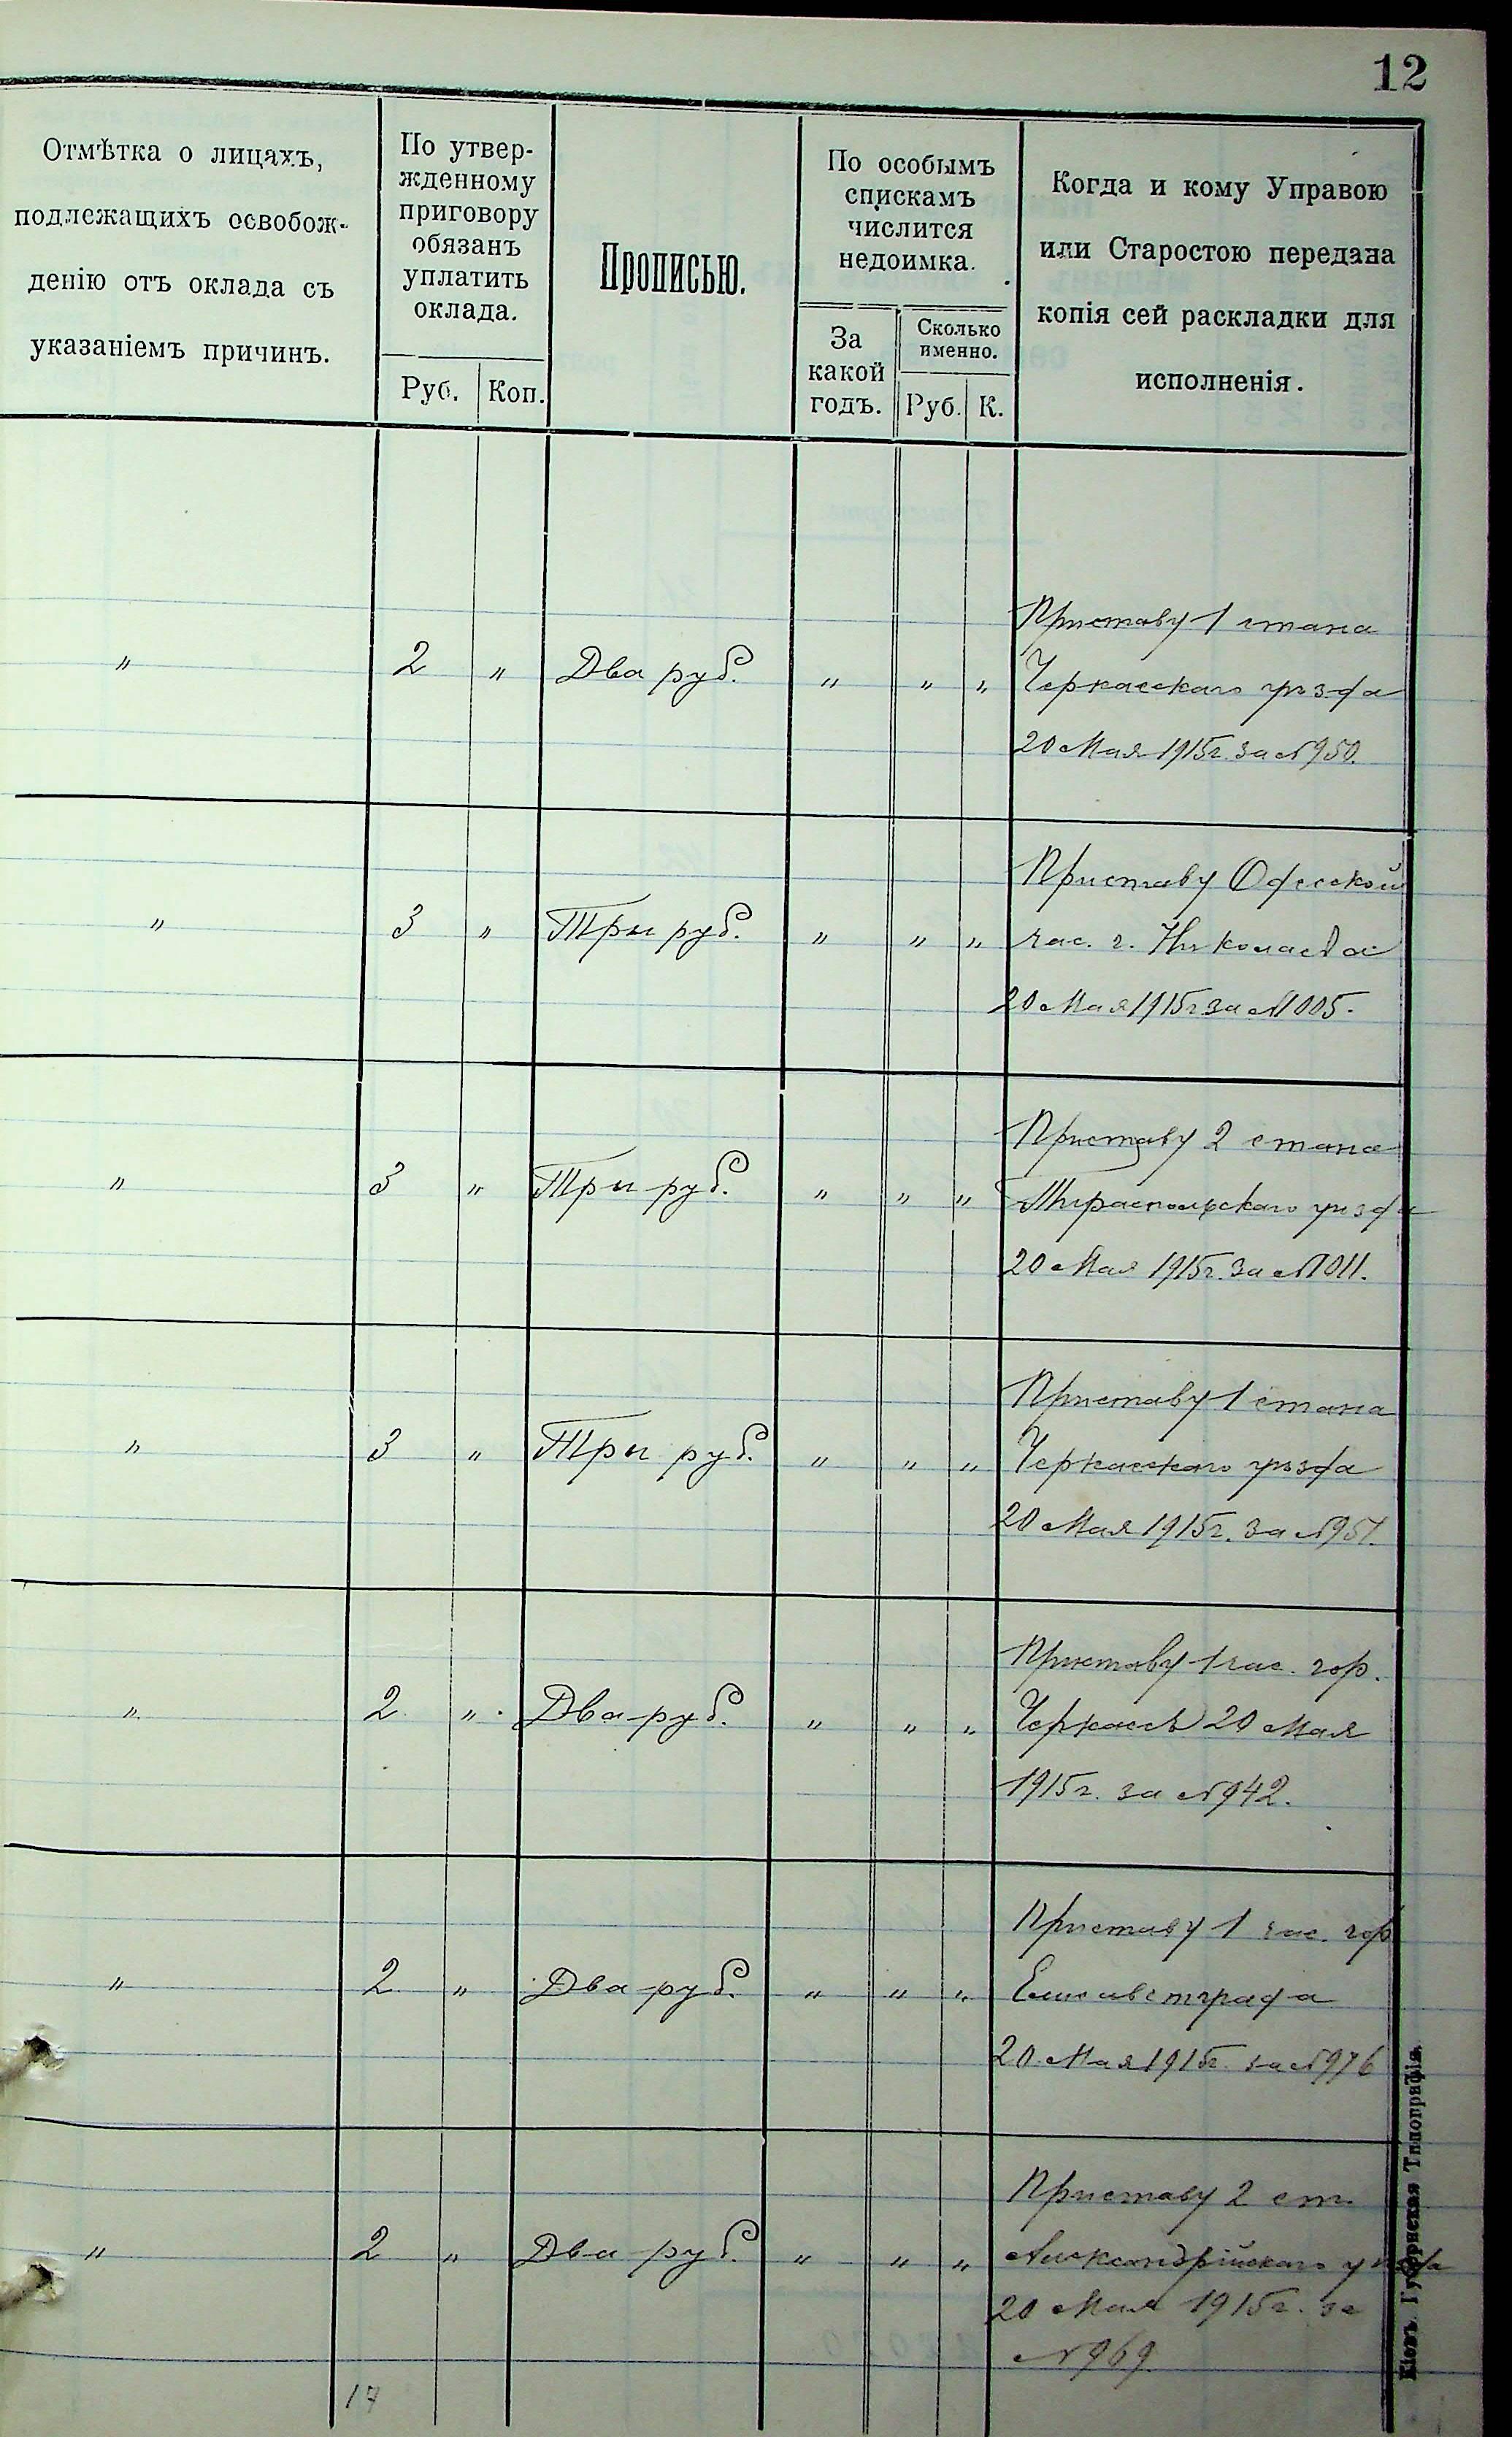 12
Отмѣтка о лицахъ,
подлежащихъ освобож-
денію отъ оклада съ
указаніемъ причинъ.
По утвер-
жденному
приговору
обязанъ
уплатить
оклада.
Руб. Коп.
Прописью.
По особымъ
спискамъ
числится
недоимка.
За
какой
годъ.
Сколько
именно.
Руб. К.
Когда и кому Управою
или Старостою передана
копія сей раскладки для
исполненія.
Приставу 1 стана
" 2 " Два руб. " " " Черкасскаго уѣзда
20 Мая 1915г. за № 950.
Приставу Одесской
" 3 " Три руб. " " " час. г. Николаева
20 Мая 1915г за № 1005.
Приставу 2 стана
" 3 " Три руб. " " " Тираспольскаго уѣзда
20 Мая 1915г. за № 1011.
Приставу 1 стана
" 3 " Три руб. " " " Черкасскаго уѣзда
20 Мая 1915г. за №
Приставу 1 час. гор.
" 2 " Два руб. " " " Черкассъ 20 Мая
1915г. за № 942.
Приставу 1 час. гор
" 2 " Два руб. " " " Елисаветграда
20 Мая 1915г. за № 976
Приставу 2 ст.
" 2 " Два руб. " " " Александрійскаго уѣзда
20 Мая 1915г. за
№ 969.
17
Кіевъ. Губернская Типографія.